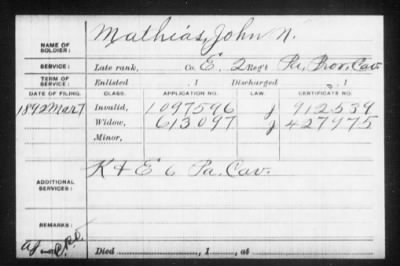 NAME OF SOLDIER: Mathias, John N.
SERVICE: Late rank, Co. E, 2 Reg't Pa. Prov. Cav.
TERM OF SERVICE: Enlisted , 1 Discharged , 1
DATE OF FILING. CLASS. APPLICATION NO. LAW. CERTIFICATE NO.
1892 Mar 7 Invalid, 1097596 J 912539
Widow, 613097 J 427975
Minor,
ADDITIONAL SERVICES: K & E 6 Pa. Cav.
REMARKS:
Died , 1 , at